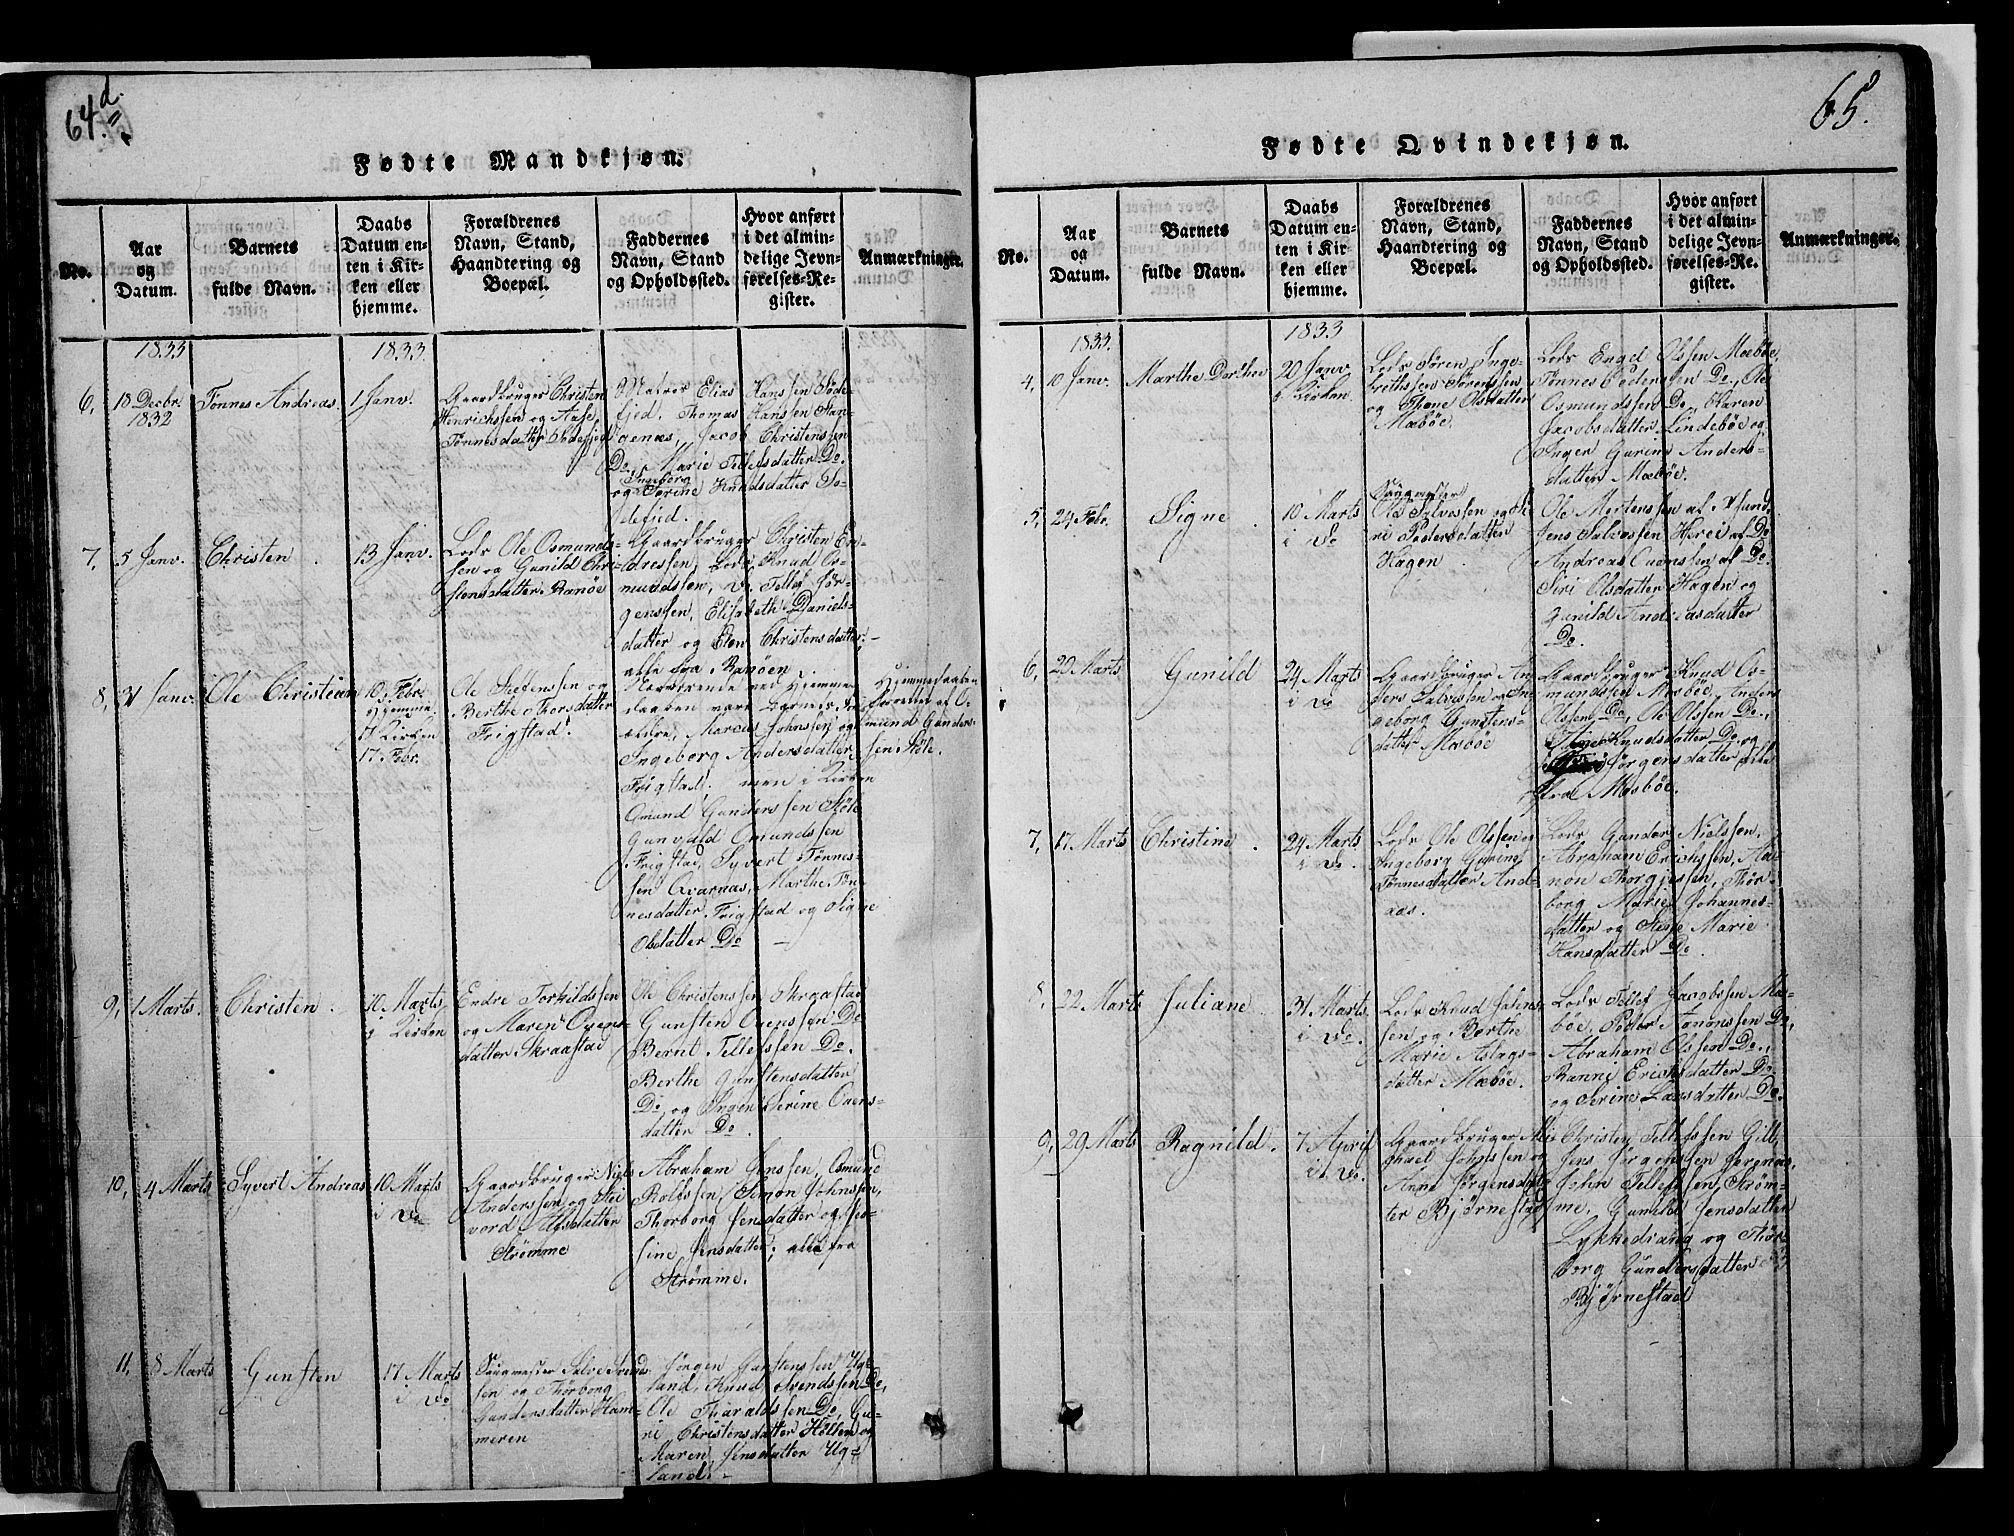 64.d.
Fødte Mandkjøn.
No.
Aar
og
Datum.
Barnets
fulde Navn.
Daabs
Datum en-
ten i Kir-
ken eller
hjemme.
Forældrenes
Navn, Stand,
Haandtering og
Boepæl.
Faddernes
Navn, Stand
og Opholdssted.
Hvor anført
i det almin-
delige Jevn-
førelses-Re-
gister.
Anmærkninger.
1833
1833.
6,
18 Decbr.
1832
Tønnes Andreas.
1 Janv.
Gaardbruger Christen
Henrichssen og Aase
Tønnesdatter Eidesfjed
Elias Hanssen
Thomas Hanssen
Jacob Christenssen
Do, Marie Tellefsdatter Do.
Ingeborg
og Sørine Knudsdatter
7,
5 Janv.
Christen
13 Janv.
Lods Ole Osmunds-
sen og Gunild Chri-
stensdatter Randøe
Gaardbruger Christen En-
dressen, Lods Knud Os-
mundssen, Do Tellef Jør-
genssen, Elisabeth Daniels-
datter og Elen Christensdatter,
alle fra Randøen
8,
31 Janv.
Ole Christian
10 Febr.
Hjemme
i Kirken
17 Febr.
Ole Steffenssen og
Berthe Thorsdatter
Frigstad.
Nærværende ved Hjemme
daaben vare Barnets For-
ældre, Marcus Johnssen og
Ingeborg Andersdatter
Frigstad; men i Kirken
Omund Gunderssen Støle
Gunvald Omundssen
Frigstad, Syvert Tønnes-
sen Qvarnæs, Marthe Tøn-
nesdatter Frigstad og Signe
Olsdatter Do
Hjemmedaaben
forrettet af O-
mund Gunders-
sen Støle.
9,
1 Marts.
Christen
10 Marts
i Kirken
Endre Torkildssen
og Maren Ovens-
datter Skraastad
Ole Christenssen Skraastad
Gunsten Ovenssen Do
Bernt Tellefssen Do.
Berthe Gunstensdatter
Do, og Inger Serine Ovens-
datter Do.
10,
4 Marts
Syvert Andreas
10 Marts
i Do
Gaardbruger Niels
Anderssen og
Strømme
Abraham Jenssen, Osmund
Rolfssen, Simon Johnssen,
Thorborg Jensdatter og Jo-
sine Jensdatter; alle fra
Strømme.
11,
8 Marts
Gunsten
17 Marts
i Do
Saugmester Salve Svends-
sen og Thorborg
Gundersdatter Ham-
meren
Jørgen Gunstenssen Ug-
land, Knud Svendssen Do,
Ole Tharaldssen Do, Gu-
ri Christensdatter Hollen og
Maren Jensdatter Ug-
land.
65.
Fødte Qvindekjøn.
No.
Aar
og
Datum.
Barnets
fulde Navn.
Daabs
Datum en-
ten i Kir-
ken eller
hjemme.
Forældrenes
Navn, Stand,
Haandtering og
Boepæl.
Faddernes
Navn, Stand
og Opholdssted.
Hvor anført
i det almin-
delige Jevn-
førelses-Re-
gister.
Anmærkninger.
1833.
1833
4,
10 Janv.
Marthe Dorthee
20 Janv
i Kirken
Lods Søren Inge-
brethssen Sørenssen
og Thone Olsdatter
Mæbøe.
Lods Engel Olssen Mæbøe,
Tønnes Pederssen Do, Ole
Osmundssen Do, Karen
Jacobsdatter Lindebøe og
Inger Gurine Anders-
datter Mæbøe.
5,
24 Febr.
Signe
10 Marts
i Do
Saugmester
Ole Salvessen og Si-
ri Pedersdatter
Hagen
Ole Mortenssen
Jens Salvessen
Andreas Ovenssen af Do.
Siri Olsdatter Hagen og
Gunild Andreasdatter
Do.
6,
20 Marts
Gunild
24 Marts
i Do
Gaardbruger An-
ders Salvessen og In-
geborg Gunstens-
datter Mæbøe
Gaardbruger Knud Os-
mundssen Mæbøe, Anders
Olssen Do, Ole Olssen Do.,
Knudsdatter Do og
Jørgensdatter
Mæbøe.
7,
17 Marts
Christine
24 Marts
i Do.
Lods Ole Olssen og
Ingeborg Gurine
Tønnesdatter And-
aas.
Lods Gunder Nielssen,
Abraham Erichssen,
Thorgjessen, Thor-
borg Marie Johannes-
datter og Marie
Hansdatter Do
8,
22 Marts
Juliane
31 Marts
i Do.
Lods Knud
sen og Berthe
Marie Aslags-
datter Mæbøe.
Lods Tellef Jacobssen Mæ-
bøe, Peder Do,
Abraham Olssen Do.,
Do
og Serine Larsdatter Do.
9,
29 Marts
Ragnild.
7 April
i Do.
Gaardbruger Mi-
chael Johnssen og
Anne Jørgensdat-
ter Bjørnestad
Christen Tellefssen
Jens Jørgenssen
John Tellefssen, Strøm-
me, Gunild Jensdatter
Lykkedrang og Thor-
borg Gundersdatter
Bjørnestad